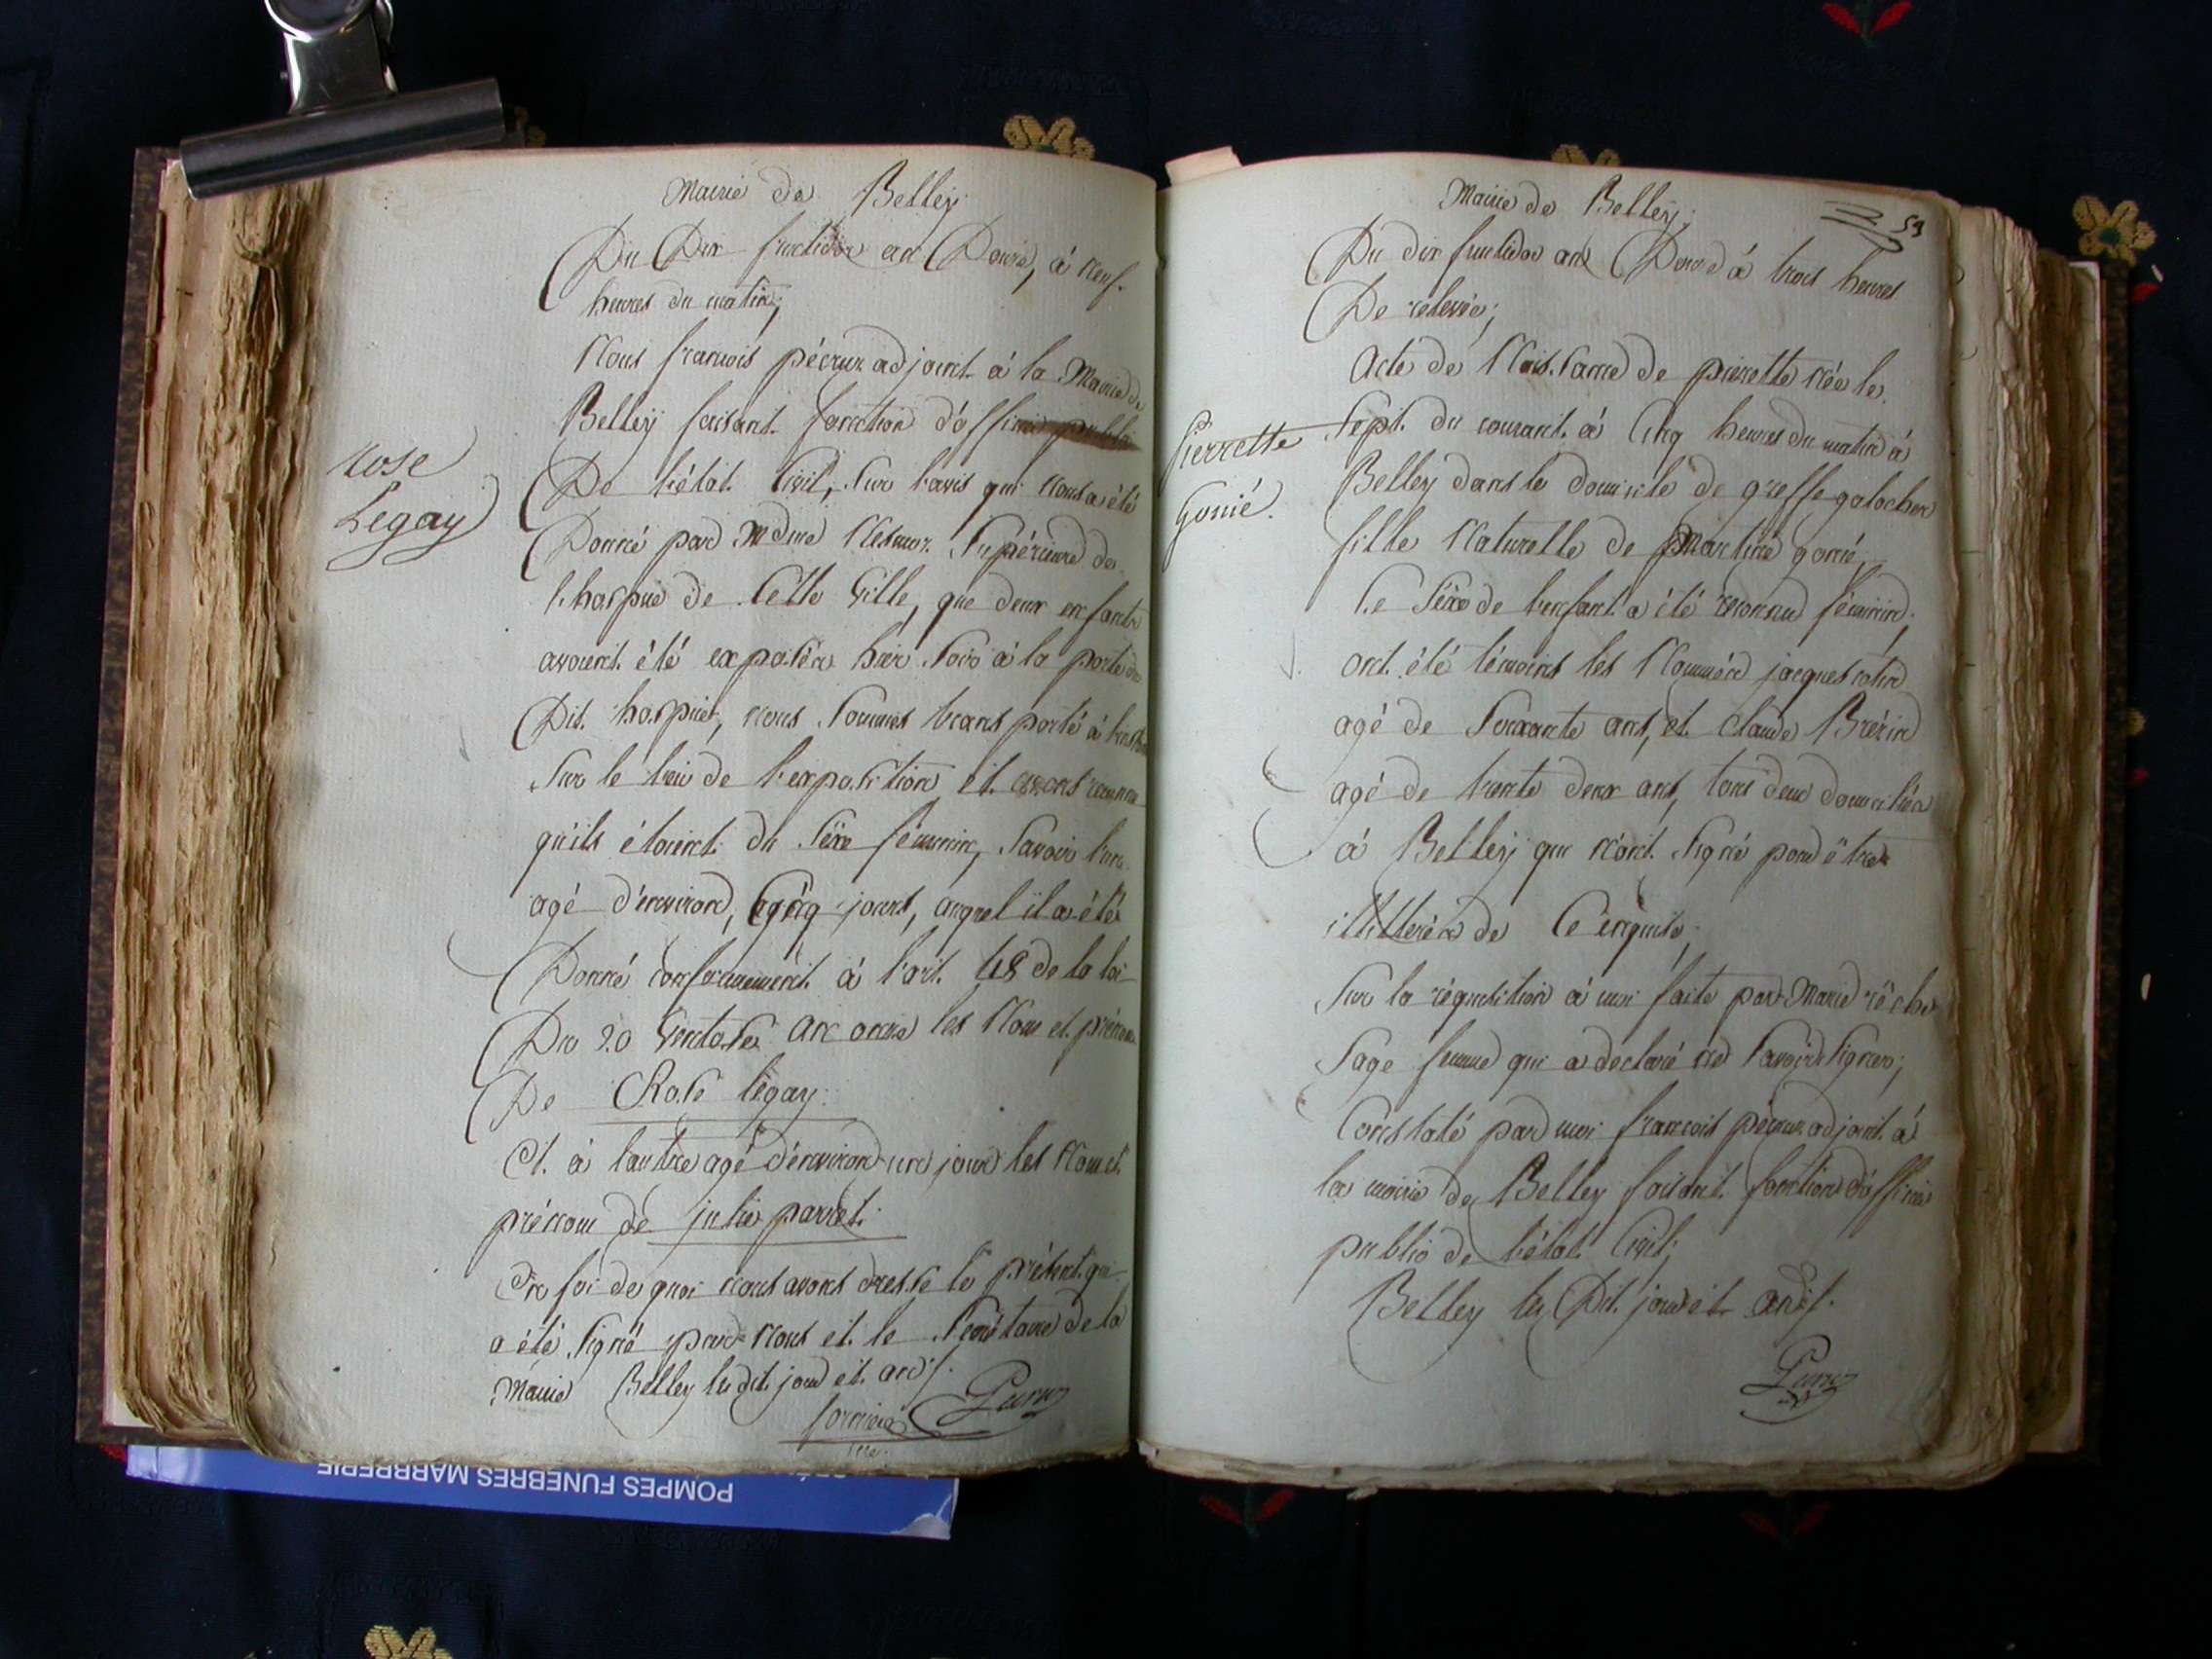 Mairie de Belley
Du Dix fructidor an Douze, à neuf
heures du matin;
Nous francois pécruz adjoint à la Mairie de
Belley faisant fonction d'officier public
De l'état Civil, sur l'avis qui nous a été
Donné par Mdme Supérieure de
l'hospice de Cette Ville, que deux enfants
avoient été exposés hier soir à la porte du
Dit hospice, nous sommes transporté à l'instant
sur le lieu de l'exposition et avons reconnu
qu'ils étoient du sexe féminin, savoir l'un
agé d'environ, Cinq jours, auquel il a été
Donné conformément à l'art. 48 de la loi
Du 20 Ventose an onze les Nom et prénom
De Rose légay.
Et à l'autre agé d'environ un jour les Nom et
prénom de julie parret.
En foi de quoi nous avons dressé le présent qui
a été signé par Nous et le Secrétaire de la
Mairie Belley les dit jour et an
rose
Legay
Mairie de Belley.
53
Du dix fructidor an Douze à trois heures
De relevée;
Acte de Naissance de pierrette née le
Sept du courant à Cinq heures du matin à
Belley dans le domicile de greffe galocher
fille Naturelle de Martine gonié,
Le Sexe de l'enfant a été reconnu féminin;
ont été témoins les Nommés jacques
agé de Soixante ans, et Claude Brézin
agé de trente deux ans, tous deux domiciliés
à Belley qui n'ont signé pour être
illittérés de Ce enquis;
Sur la réquisition à moi faite par Marie
Sage femme qui a declaré ne Savoir Signer;
Constaté par moi francois pécruz adjoint à
la mairie de Belley faisant fonction d'officier
public de l'état Civil;
Belley les Dit jour et an
Pierrette
Gonié.
POMPES FUNEBRES MARBRERIE